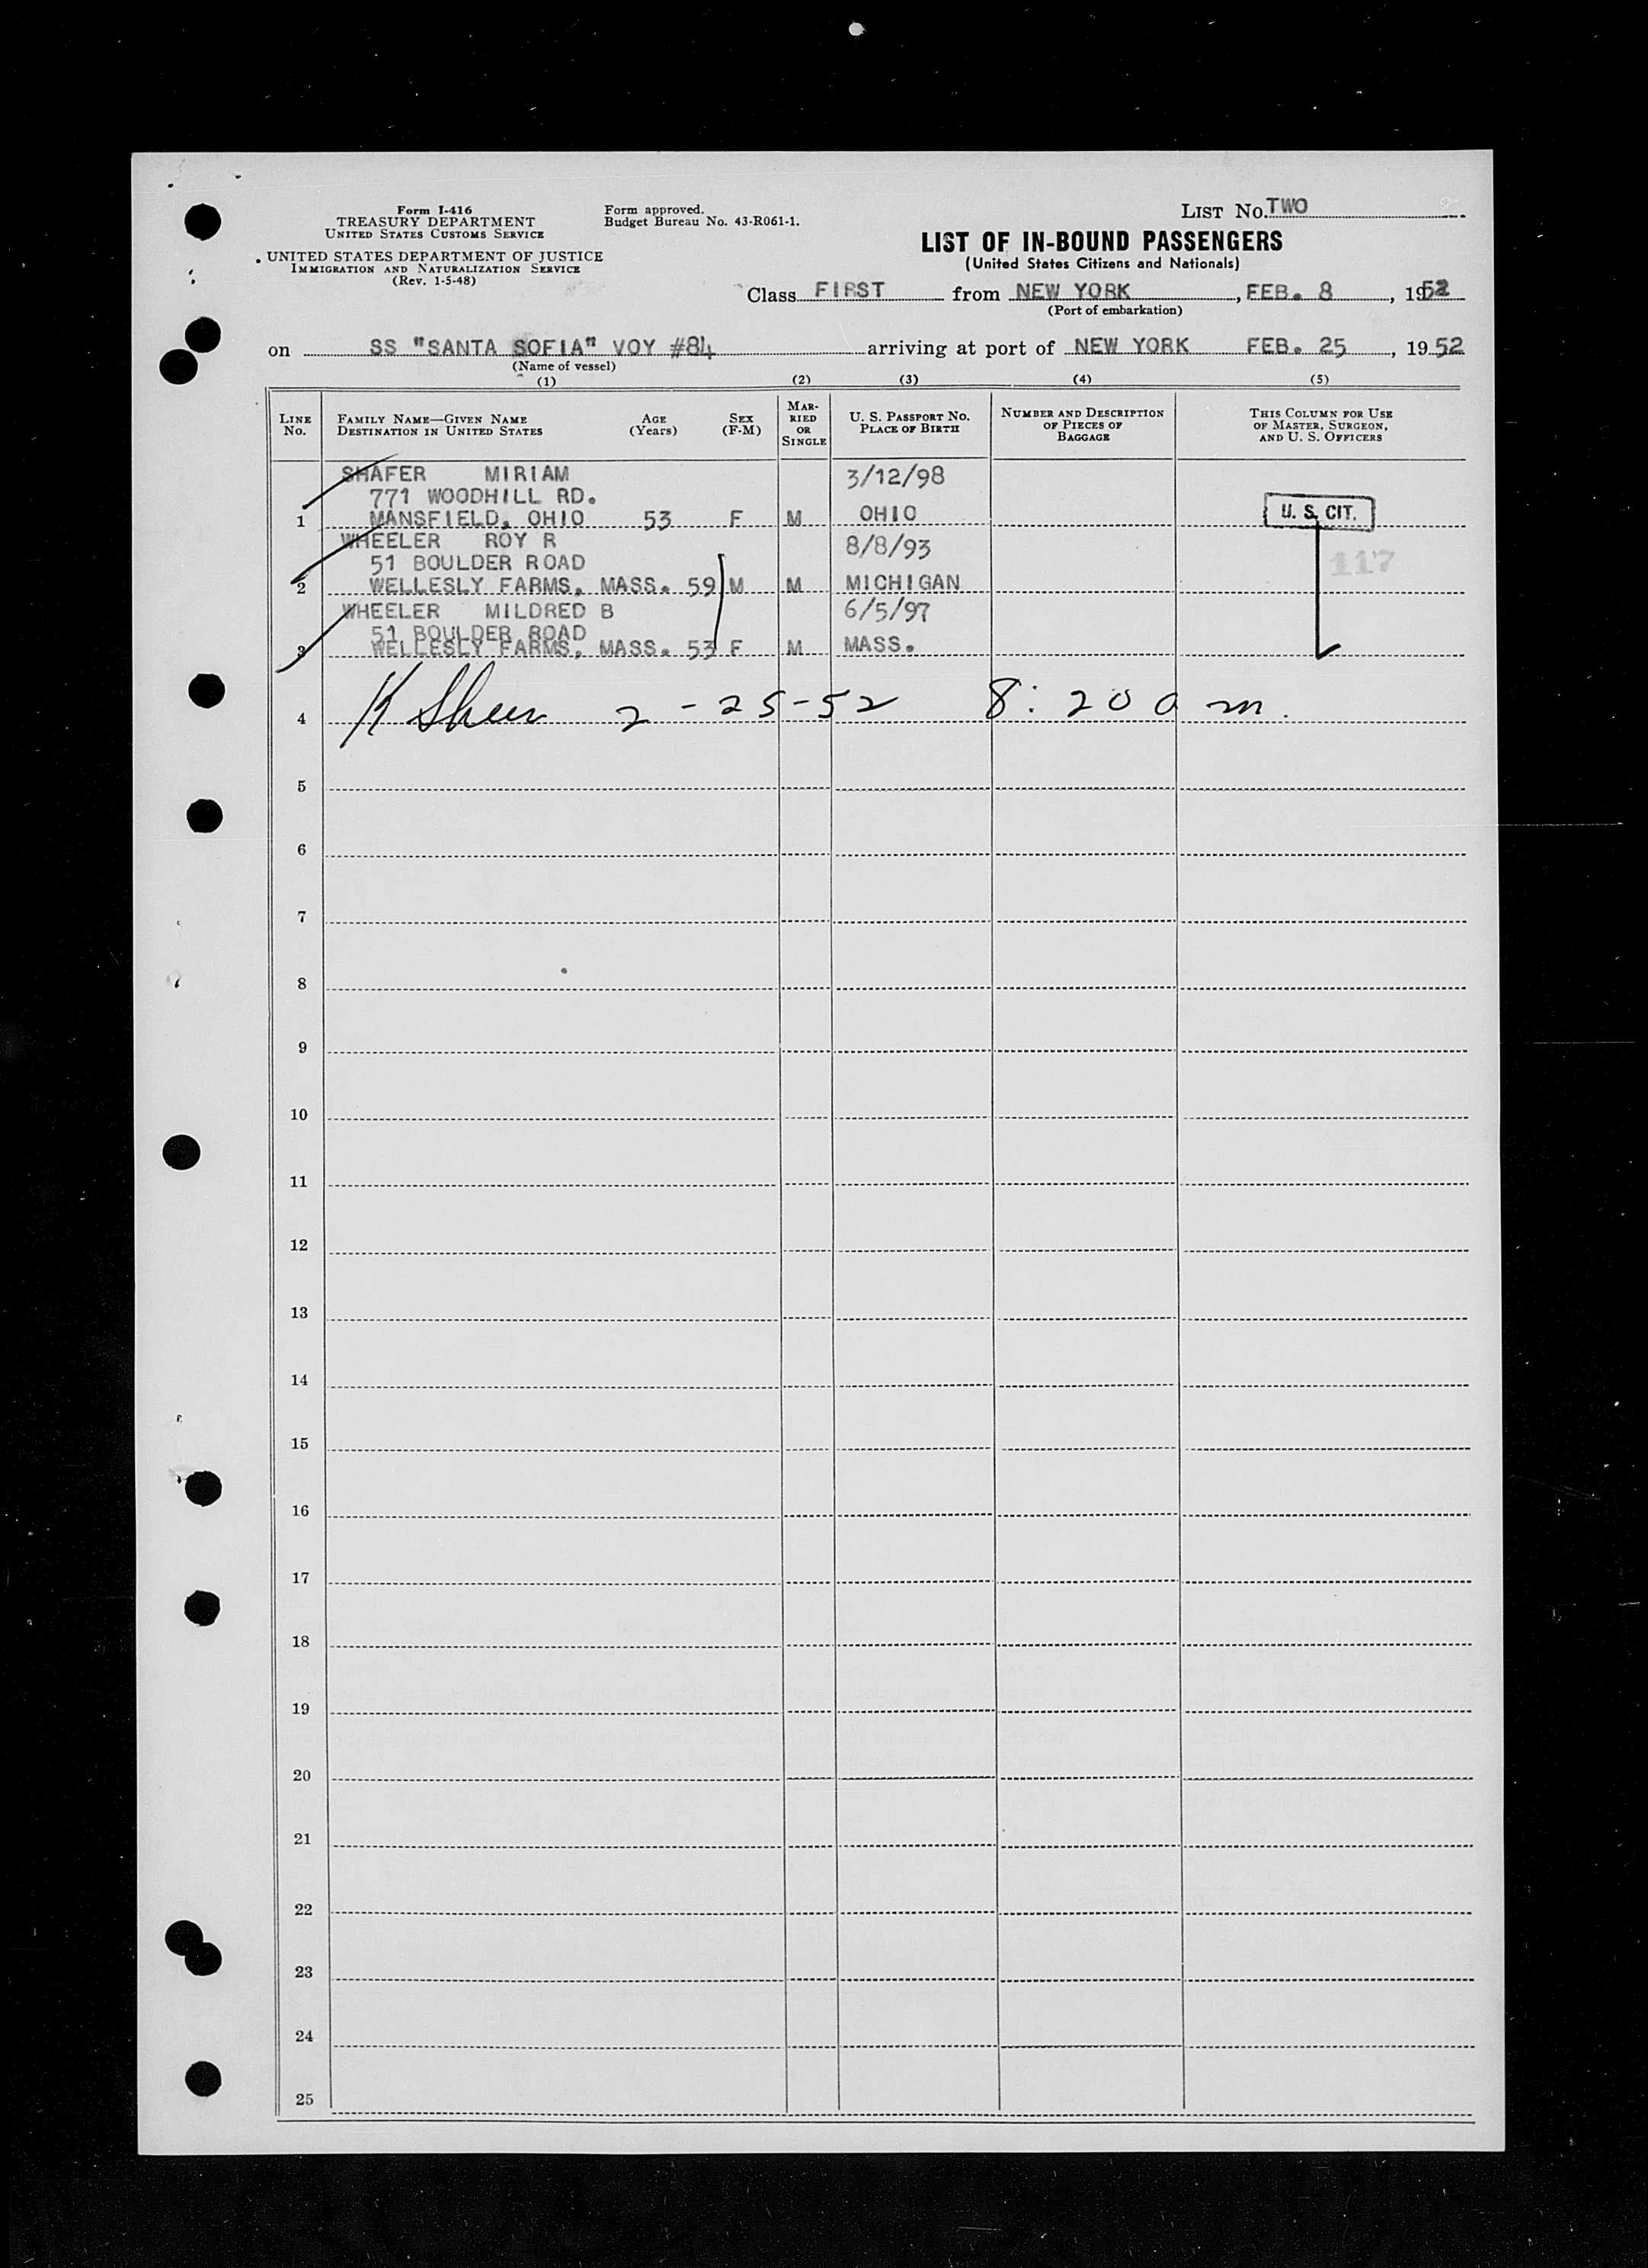 Form I-416
TREASURY DEPARTMENT
UNITED STATES CUSTOMS SERVICE
UNITED STATES DEPARTMENT OF JUSTICE
IMMIGRATION AND NATURALIZATION SERVICE
(Rev. 1-5-48)
Form approved.
Budget Bureau No. 43-R061-1.
LIST No. TWO
LIST OF IN-BOUND PASSENGERS
(United States Citizens and Nationals)
Class FIRST from NEW YORK, FEB. 8, 1952
(Port of embarkation)
on SS "SANTA SOFIA" VOY #84 arriving at port of NEW YORK FEB. 25, 1952
(Name of vessel)
(1) (2) (3) (4) (5)
LINE No.
FAMILY NAME—GIVEN NAME
DESTINATION IN UNITED STATES
AGE (Years)
SEX (F-M)
MARRIED OR SINGLE
U. S. PASSPORT No.
PLACE OF BIRTH
NUMBER AND DESCRIPTION OF PIECES OF BAGGAGE
THIS COLUMN FOR USE OF MASTER, SURGEON, AND U. S. OFFICERS
SHAFER MIRIAM 3/12/98
771 WOODHILL RD.
1 MANSFIELD, OHIO 53 F M OHIO U. S. CIT.
WHEELER ROY R 8/8/93
51 BOULDER ROAD 117
2 WELLESLY FARMS, MASS. 59 M M MICHIGAN
WHEELER MILDRED B 6/5/97
51 BOULDER ROAD
3 WELLESLY FARMS, MASS. 53 F M MASS.
4 2-25-52 8:20 a m.
5
6
7
8
9
10
11
12
13
14
15
16
17
18
19
20
21
22
23
24
25